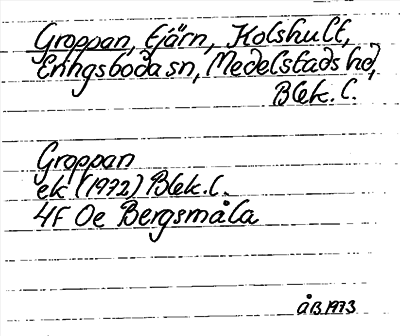 Groppan, tjärn, Kolshult,
Eringsboda sn, Medelstads hd,
Blek. l.
Groppan
ek (1972) Blek. l.
4F 0e Bergsmåla
ÅB 1973